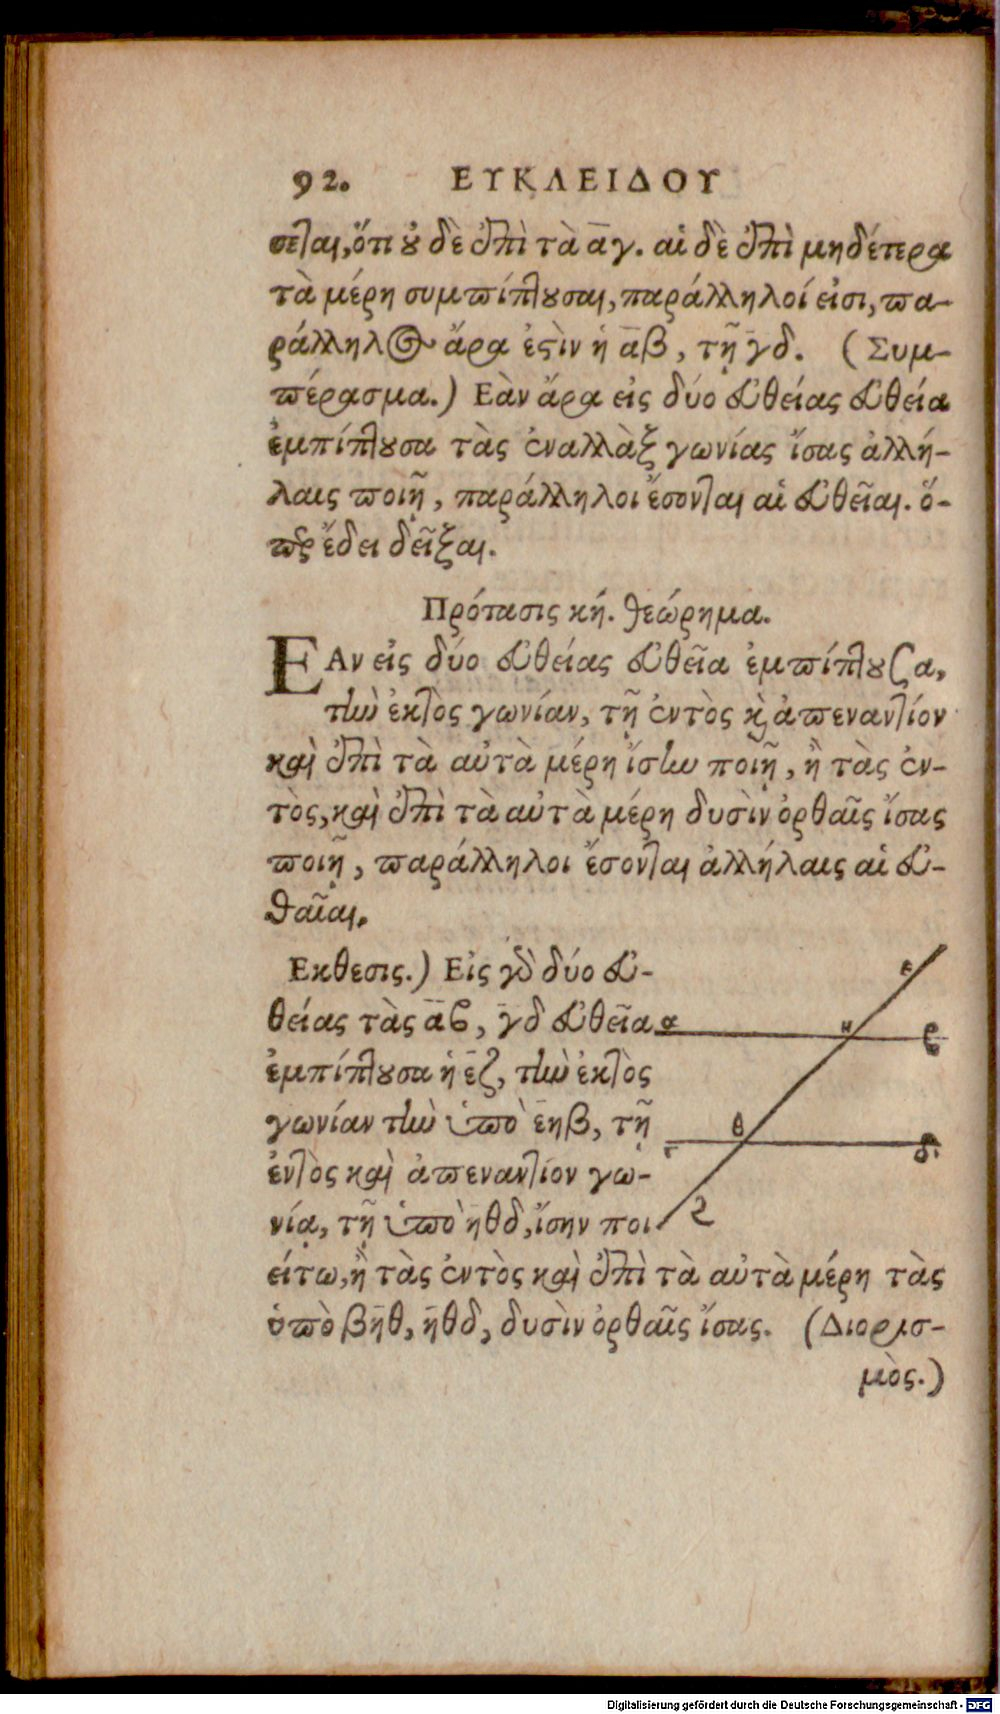 92. ΕΥΚΛΕΙΔΟΥ
σεται, ὅτι οὐδὲ ἐπὶ τὰ α̅γ. αἱ δὲ ἐπὶ μηδέτερα
τὰ μέρη συμπίπτουσαι, παράλληλοί εἰσι, πα-
ράλληλος ἄρα ἐστὶν ἡ α̅β, τῇ γ̅δ. (Συμ-
πέρασμα.) Εὰν ἄρα εἰς δύο εὐθείας εὐθεία
ἐμπίπτουσα τὰς ἐναλλὰξ γωνίας ἴσας ἀλλή-
λαις ποιῇ, παράλληλοι ἔσονται αἱ εὐθεῖαι. ὅ-
περ ἔδει δεῖξαι.
Πρότασις κή. θεώρημα.
ΕΑν εἰς δύο εὐθείας εὐθεῖα ἐμπίπτουσα,
τὴν ἐκτὸς γωνίαν, τῇ ἐντὸς κὶ ἀπεναντίον
καὶ ἐπὶ τὰ αὐτὰ μέρη ἴσην ποιῇ, ἢ τὰς ἐν-
τὸς, καὶ ἐπὶ τὰ αὐτὰ μέρη δυσὶν ὀρθαῖς ἴσας
ποιῇ, παράλληλοι ἔσονται ἀλλήλαις αἱ εὐ-
θαῖαι.
Εκθεσις.) Εἰς γὸ δύο εὐ-
θείας τὰς α̅ϐ, γ̅δ εὐθεῖα
ἐμπίπτουσα ἡ ε̅ζ, τὴν ἐκτὸς
γωνίαν τὴν ὑπὸ ε̅ηβ, τῇ
ἐντὸς καὶ ἀπεναντίον γω-
νίᾳ, τῇ ὑπὸ η̅θδ, ἴσην ποι
είτω, ἢ τὰς ἐντὸς καὶ ἐπὶ τὰ αὐτὰ μέρη τὰς
ὑπὸ βη̅θ, η̅θδ, δυσὶν ὀρθαῖς ἴσας. (Διορισ-
μὸς.)
ε
α η ϐ
γ θ δ.
ζ
Digitalisierung gefördert durch die Deutsche Forschungsgemeinschaft - DFG